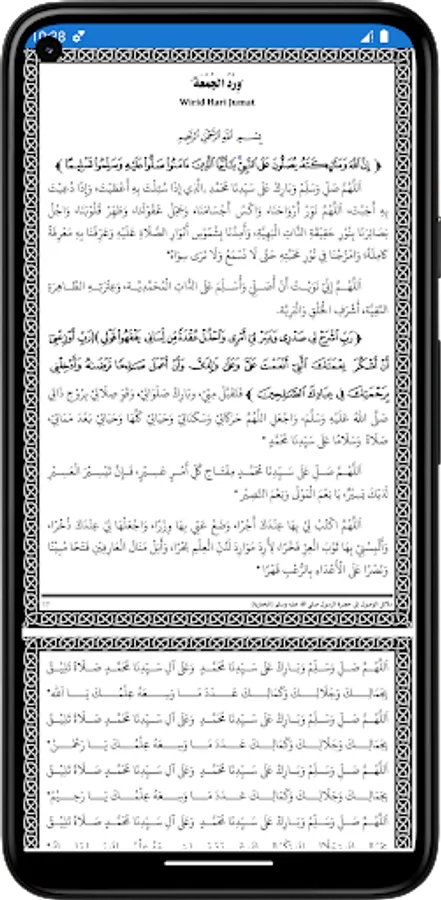 10:38
وِرْدُ الجُمُعَة
Wirid Hari Jumat
بِسْمِ اللهِ الرَّحْمٰنِ الرَّحِيْمِ
﴿ إِنَّ اللَّهَ وَمَلَائِكَتَهُ يُصَلُّونَ عَلَى النَّبِيِّ يَا أَيُّهَا الَّذِينَ آمَنُوا صَلُّوا عَلَيْهِ وَسَلِّمُوا تَسْلِيمًا ﴾
اَللّٰهُمَّ صَلِّ وَسَلِّمْ وَبَارِكْ عَلَى سَيِّدِنَا مُحَمَّدٍ الَّذِي إِذَا سُئِلْتَ بِهِ أَعْطَيْتَ، وَإِذَا دُعِيْتَ
بِهِ أَجَبْتَ، اَللّٰهُمَّ نَوِّرْ أَرْوَاحَنَا، وَاكْسُ أَجْسَامَنَا، وَجَمِّلْ عُقُوْلَنَا، وَطَهِّرْ قُلُوْبَنَا، وَاجْلُ
بَصَائِرَنَا بِنُوْرِ حَقِيْقَةِ الذَّاتِ الْبَهِيَّةِ، وَأَمِدَّنَا بِشُمُوْسِ أَنْوَارِ الصَّلَاةِ عَلَيْهِ وَعَرِّفْنَا بِهِ مَعْرِفَةً
كَامِلَةً، وَامْزُجْنَا فِي نُوْرِ مَحَبَّتِهِ حَتَّى لَا نَسْمَعَ وَلَا نَرَى سِوَاهُ
اَللّٰهُمَّ إِنِّي نَوَيْتُ أَنْ أُصَلِّيَ وَأُسَلِّمَ عَلَى الذَّاتِ الْمُحَمَّدِيَّةِ، وَعِتْرَتِهِ الطَّاهِرَةِ
النَّقِيَّةِ، أَشْرَفِ الْخَلْقِ وَالْبَرِيَّةِ.
﴿ رَبِّ اشْرَحْ لِي صَدْرِي وَيَسِّرْ لِي أَمْرِي وَاحْلُلْ عُقْدَةً مِّن لِّسَانِي يَفْقَهُوا قَوْلِي ﴾ ﴿ رَبِّ أَوْزِعْنِي
أَنْ أَشْكُرَ نِعْمَتَكَ الَّتِي أَنْعَمْتَ عَلَيَّ وَعَلَىٰ وَالِدَيَّ وَأَنْ أَعْمَلَ صَالِحًا تَرْضَاهُ وَأَدْخِلْنِي
بِرَحْمَتِكَ فِي عِبَادِكَ الصَّالِحِينَ ﴾ فَتَقَبَّلْ مِنِّي، وَبَارِكْ صَلَوَاتِي، وَقَوِّ صِلَاتِي بِرُوْحِ ذَاتِي
صَلَّى اللهُ عَلَيْهِ وَسَلَّمَ، وَاجْعَلِ اللّٰهُمَّ حَرَكَاتِي وَسَكَنَاتِي وَحَيَاتِي كُلَّهَا وَحَيَاتِي بَعْدَ مَمَاتِي،
صَلَاةً وَسَلَامًا عَلَى سَيِّدِنَا مُحَمَّدٍ
اَللّٰهُمَّ صَلِّ عَلَى سَيِّدِنَا مُحَمَّدٍ مِفْتَاحِ كُلِّ أَمْرٍ عَسِيْرٍ، فَإِنَّ تَيْسِيْرَ الْعَسِيْرِ
لَدَيْكَ يَسِيْرٌ، يَا نِعْمَ الْمَوْلَى وَنِعْمَ النَّصِيْرُ
اَللّٰهُمَّ اكْتُبْ لِي بِهَا عِنْدَكَ أَجْرًا، وَضَعْ عَنِّي بِهَا وِزْرًا، وَاجْعَلْهَا لِي عِنْدَكَ ذُخْرًا،
وَأَلْبِسْنِي بِهَا ثَوْبَ الْعِزِّ فَخْرًا، لِأَرِدَ مَوَارِدَ لَدُنِّ الْعِلْمِ بَحْرًا، وَأَنَلْ مَنَالَ الْعَارِفِيْنَ فَتْحًا مُبِيْنًا
وَنَصْرًا عَلَى الْأَعْدَاءِ بِالرُّعْبِ قَهْرًا
دلائل الوصول إلى حضرة الرسول صلى الله عليه وسلم
اَللّٰهُمَّ صَلِّ وَسَلِّمْ وَبَارِكْ عَلَى سَيِّدِنَا مُحَمَّدٍ وَعَلَى آلِ سَيِّدِنَا مُحَمَّدٍ صَلَاةً تَلِيْقُ
بِجَمَالِكَ وَجَلَالِكَ وَكَمَالِكَ عَدَدَ مَا وَسِعَهُ عِلْمُكَ يَا اَللهُ
اَللّٰهُمَّ صَلِّ وَسَلِّمْ وَبَارِكْ عَلَى سَيِّدِنَا مُحَمَّدٍ وَعَلَى آلِ سَيِّدِنَا مُحَمَّدٍ صَلَاةً تَلِيْقُ
بِجَمَالِكَ وَجَلَالِكَ وَكَمَالِكَ عَدَدَ مَا وَسِعَهُ عِلْمُكَ يَا رَحْمٰنُ
اَللّٰهُمَّ صَلِّ وَسَلِّمْ وَبَارِكْ عَلَى سَيِّدِنَا مُحَمَّدٍ وَعَلَى آلِ سَيِّدِنَا مُحَمَّدٍ صَلَاةً تَلِيْقُ
بِجَمَالِكَ وَجَلَالِكَ وَكَمَالِكَ عَدَدَ مَا وَسِعَهُ عِلْمُكَ يَا رَحِيْمُ
اَللّٰهُمَّ صَلِّ وَسَلِّمْ وَبَارِكْ عَلَى سَيِّدِنَا مُحَمَّدٍ وَعَلَى آلِ سَيِّدِنَا مُحَمَّدٍ صَلَاةً تَلِيْقُ